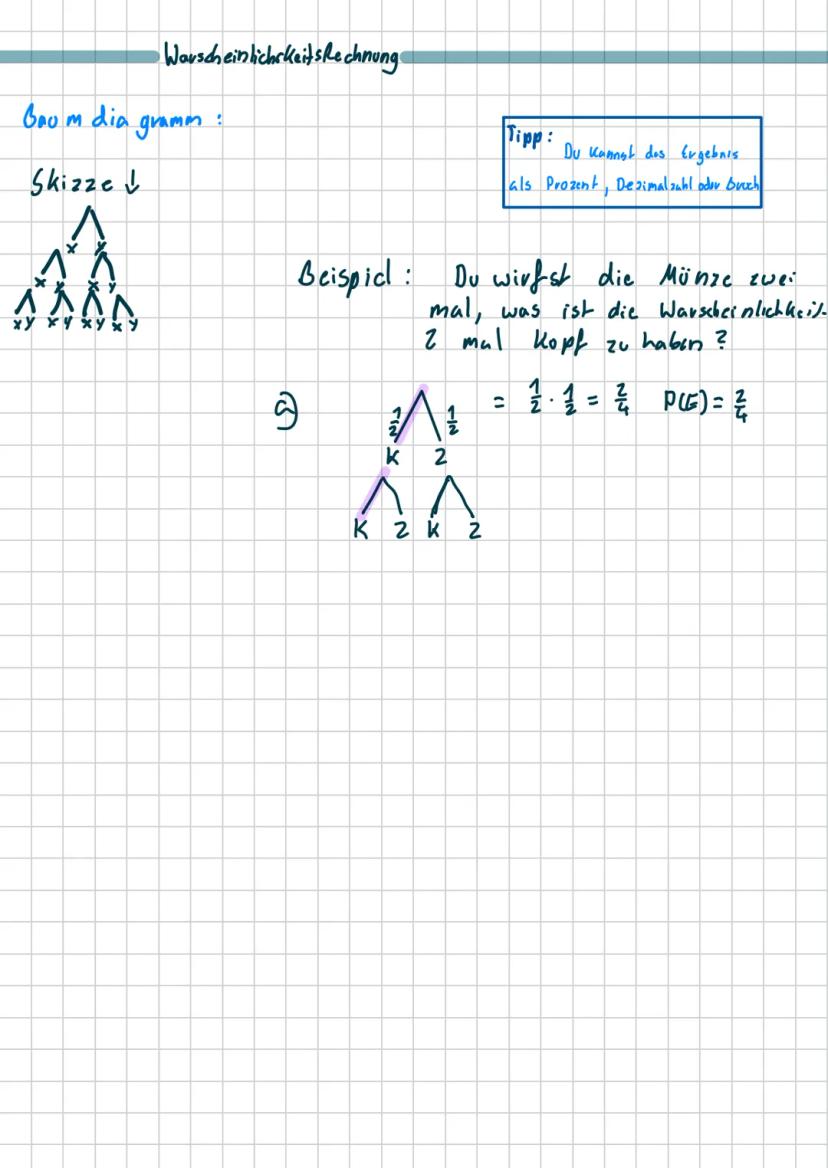 WarscheinlichrkeitsRechnung
Baumdiagramm :
Tipp:
Du kannst das Ergebnis
als Prozent, Dezimalzahl oder Bruch
Skizze ↓
x y
x y x y
x y x y x y x y
Beispiel : Du wirfst die Münze zwei
mal, was ist die Warscheinlichkeit
2 mal Kopf zu haben ?
a)
1/2 1/2 = 1/2 · 1/2 = 2/4 P(E) = 2/4
K Z
K Z K Z